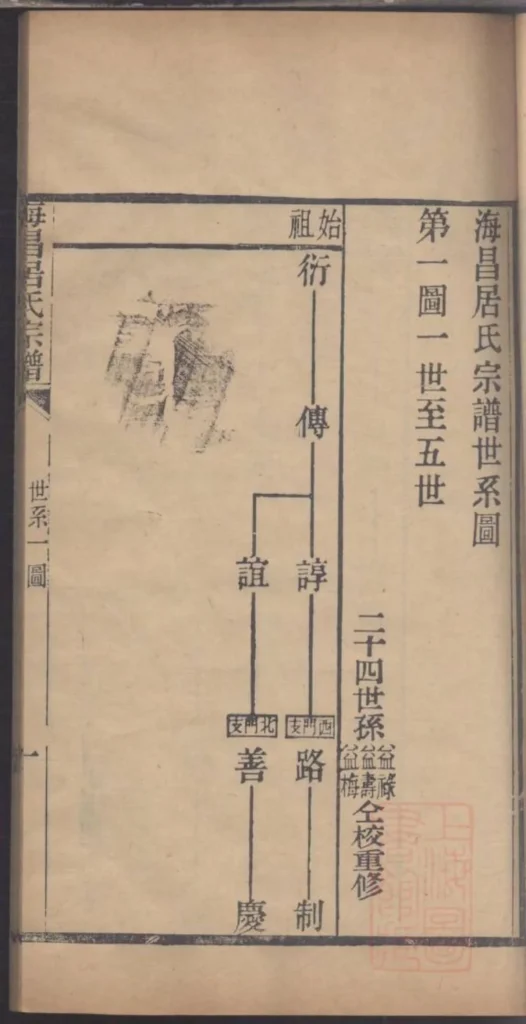 海昌居氏宗譜世系圖
第一圖一世至五世
二十四世孫
益祿
益壽
益梅
仝校重修
始祖
衍
傳
諄
西門支
路
制
誼
北門支
善
慶
海昌居氏宗譜
世系一圖
一